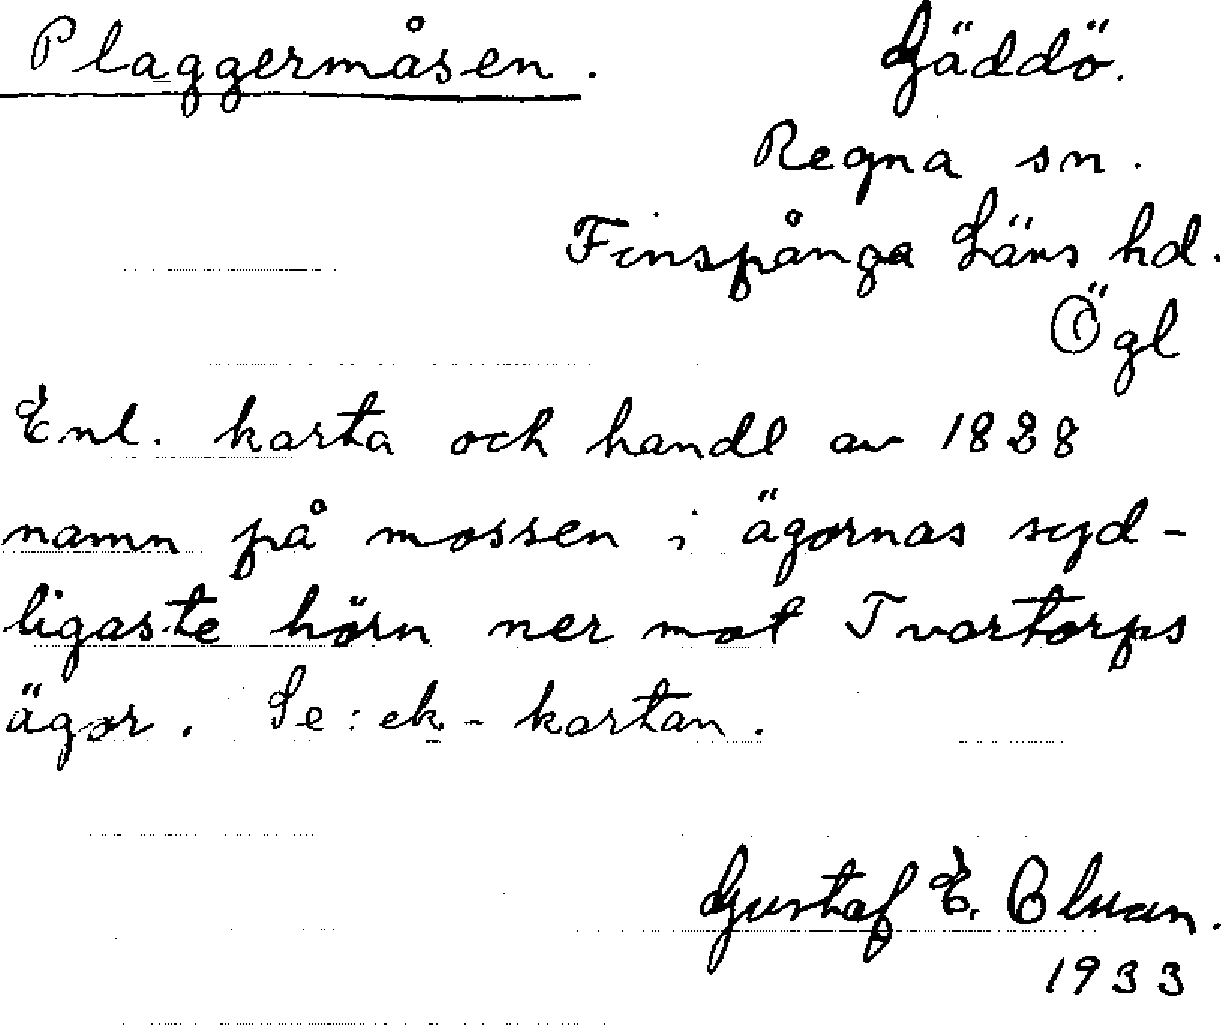 Plaggermåsen. Gäddö.
Regna sn.
Finspånga Läns hd.
Ögl
Enl. karta och handl av 1828
namn på mossen i ägornas syd-
ligaste hörn ner mot Tvartorps
ägor. Se: ek-kartan.
Gustaf E.
1933